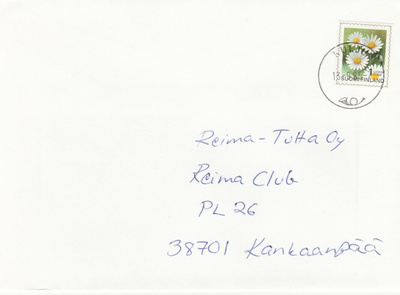 1
SUOMI FINLAND
Reima-Tutta Oy
Reima Club
PL 26
38701 Kankaanpää